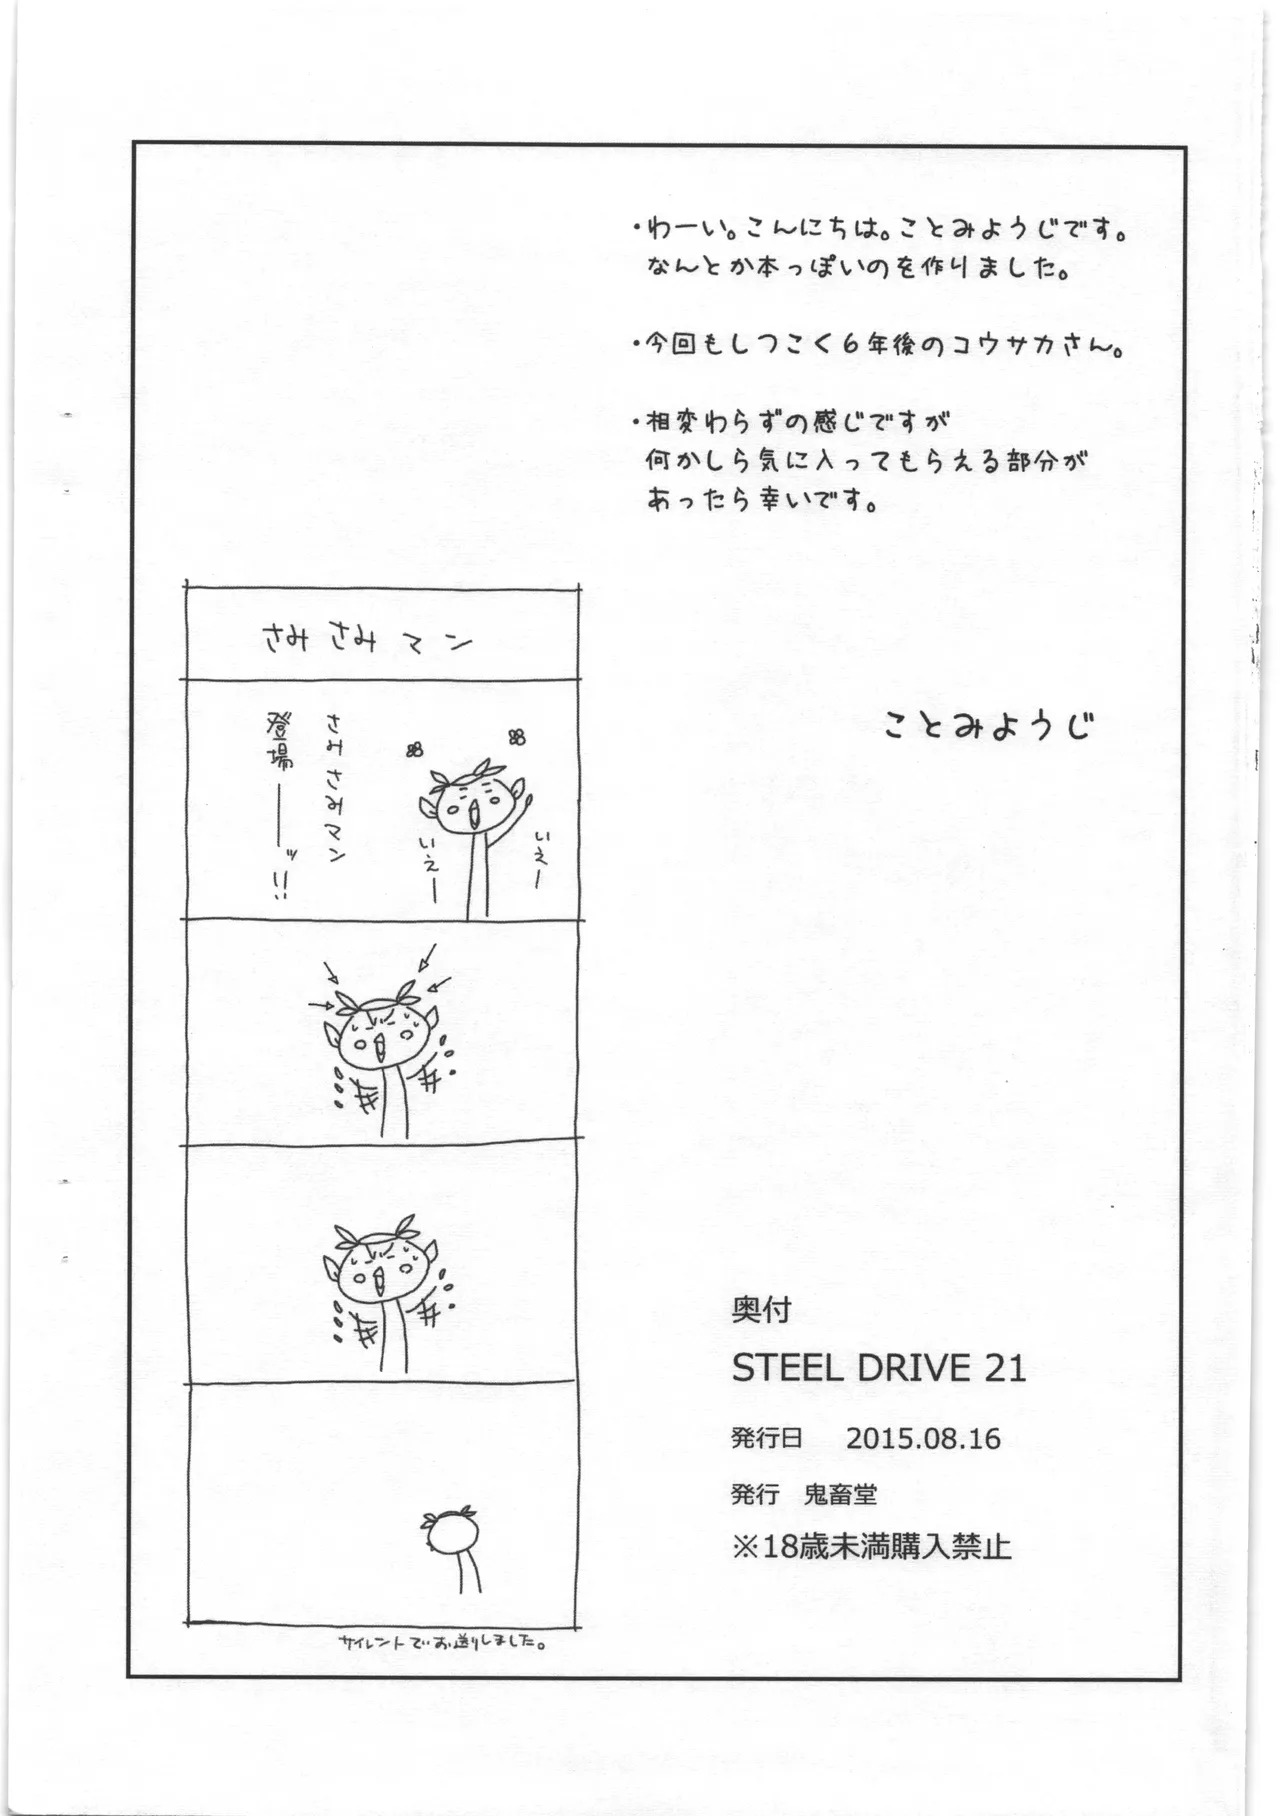 ・わーい。こんにちは。ことみようじです。
なんとか本っぽいのを作りました。
・今回もしつこく6年後のコウサカさん。
・相変わらずの感じですが
何かしら気に入ってもらえる部分が
あったら幸いです。
ことみようじ
さみさみマン
さみさみマン
登場――ッ!!
いえー
いえー
サイレントでお送りしました。
奥付
STEEL DRIVE 21
発行日 2015.08.16
発行 鬼畜堂
※18歳未満購入禁止